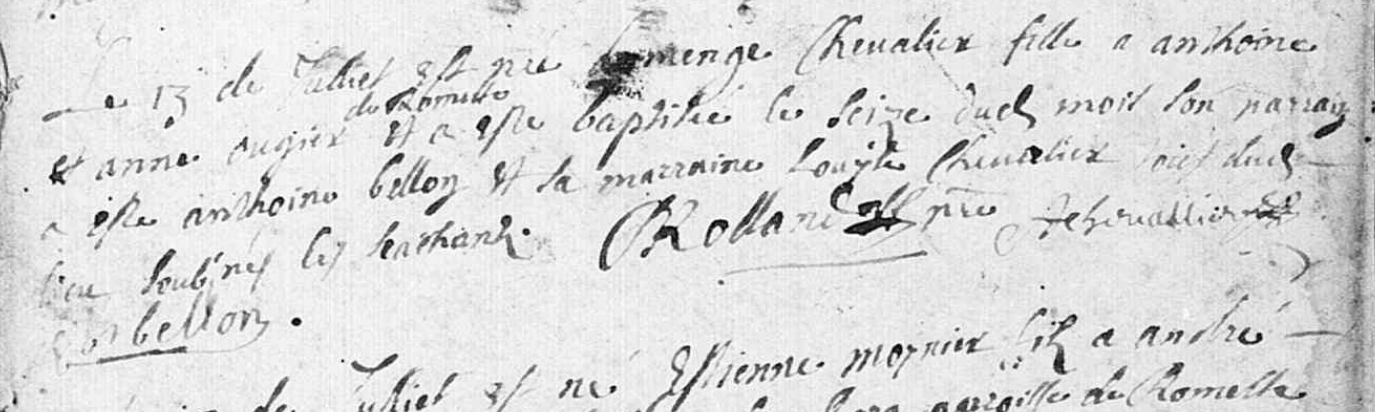 Le 13 de Julliet est née domenge Chevalier fille a anthoine
de Romette
et anne ougier et a este baptisée le seize dud mois son parrain
a este anthoine bellon et sa marraine Louyse Chevalier tous dud
lieu soubsnés les scachants. Rolland ptre Jchevallier
bellon.
de Julliet est né Estienne mognier filz a andré
parroisse de Romette